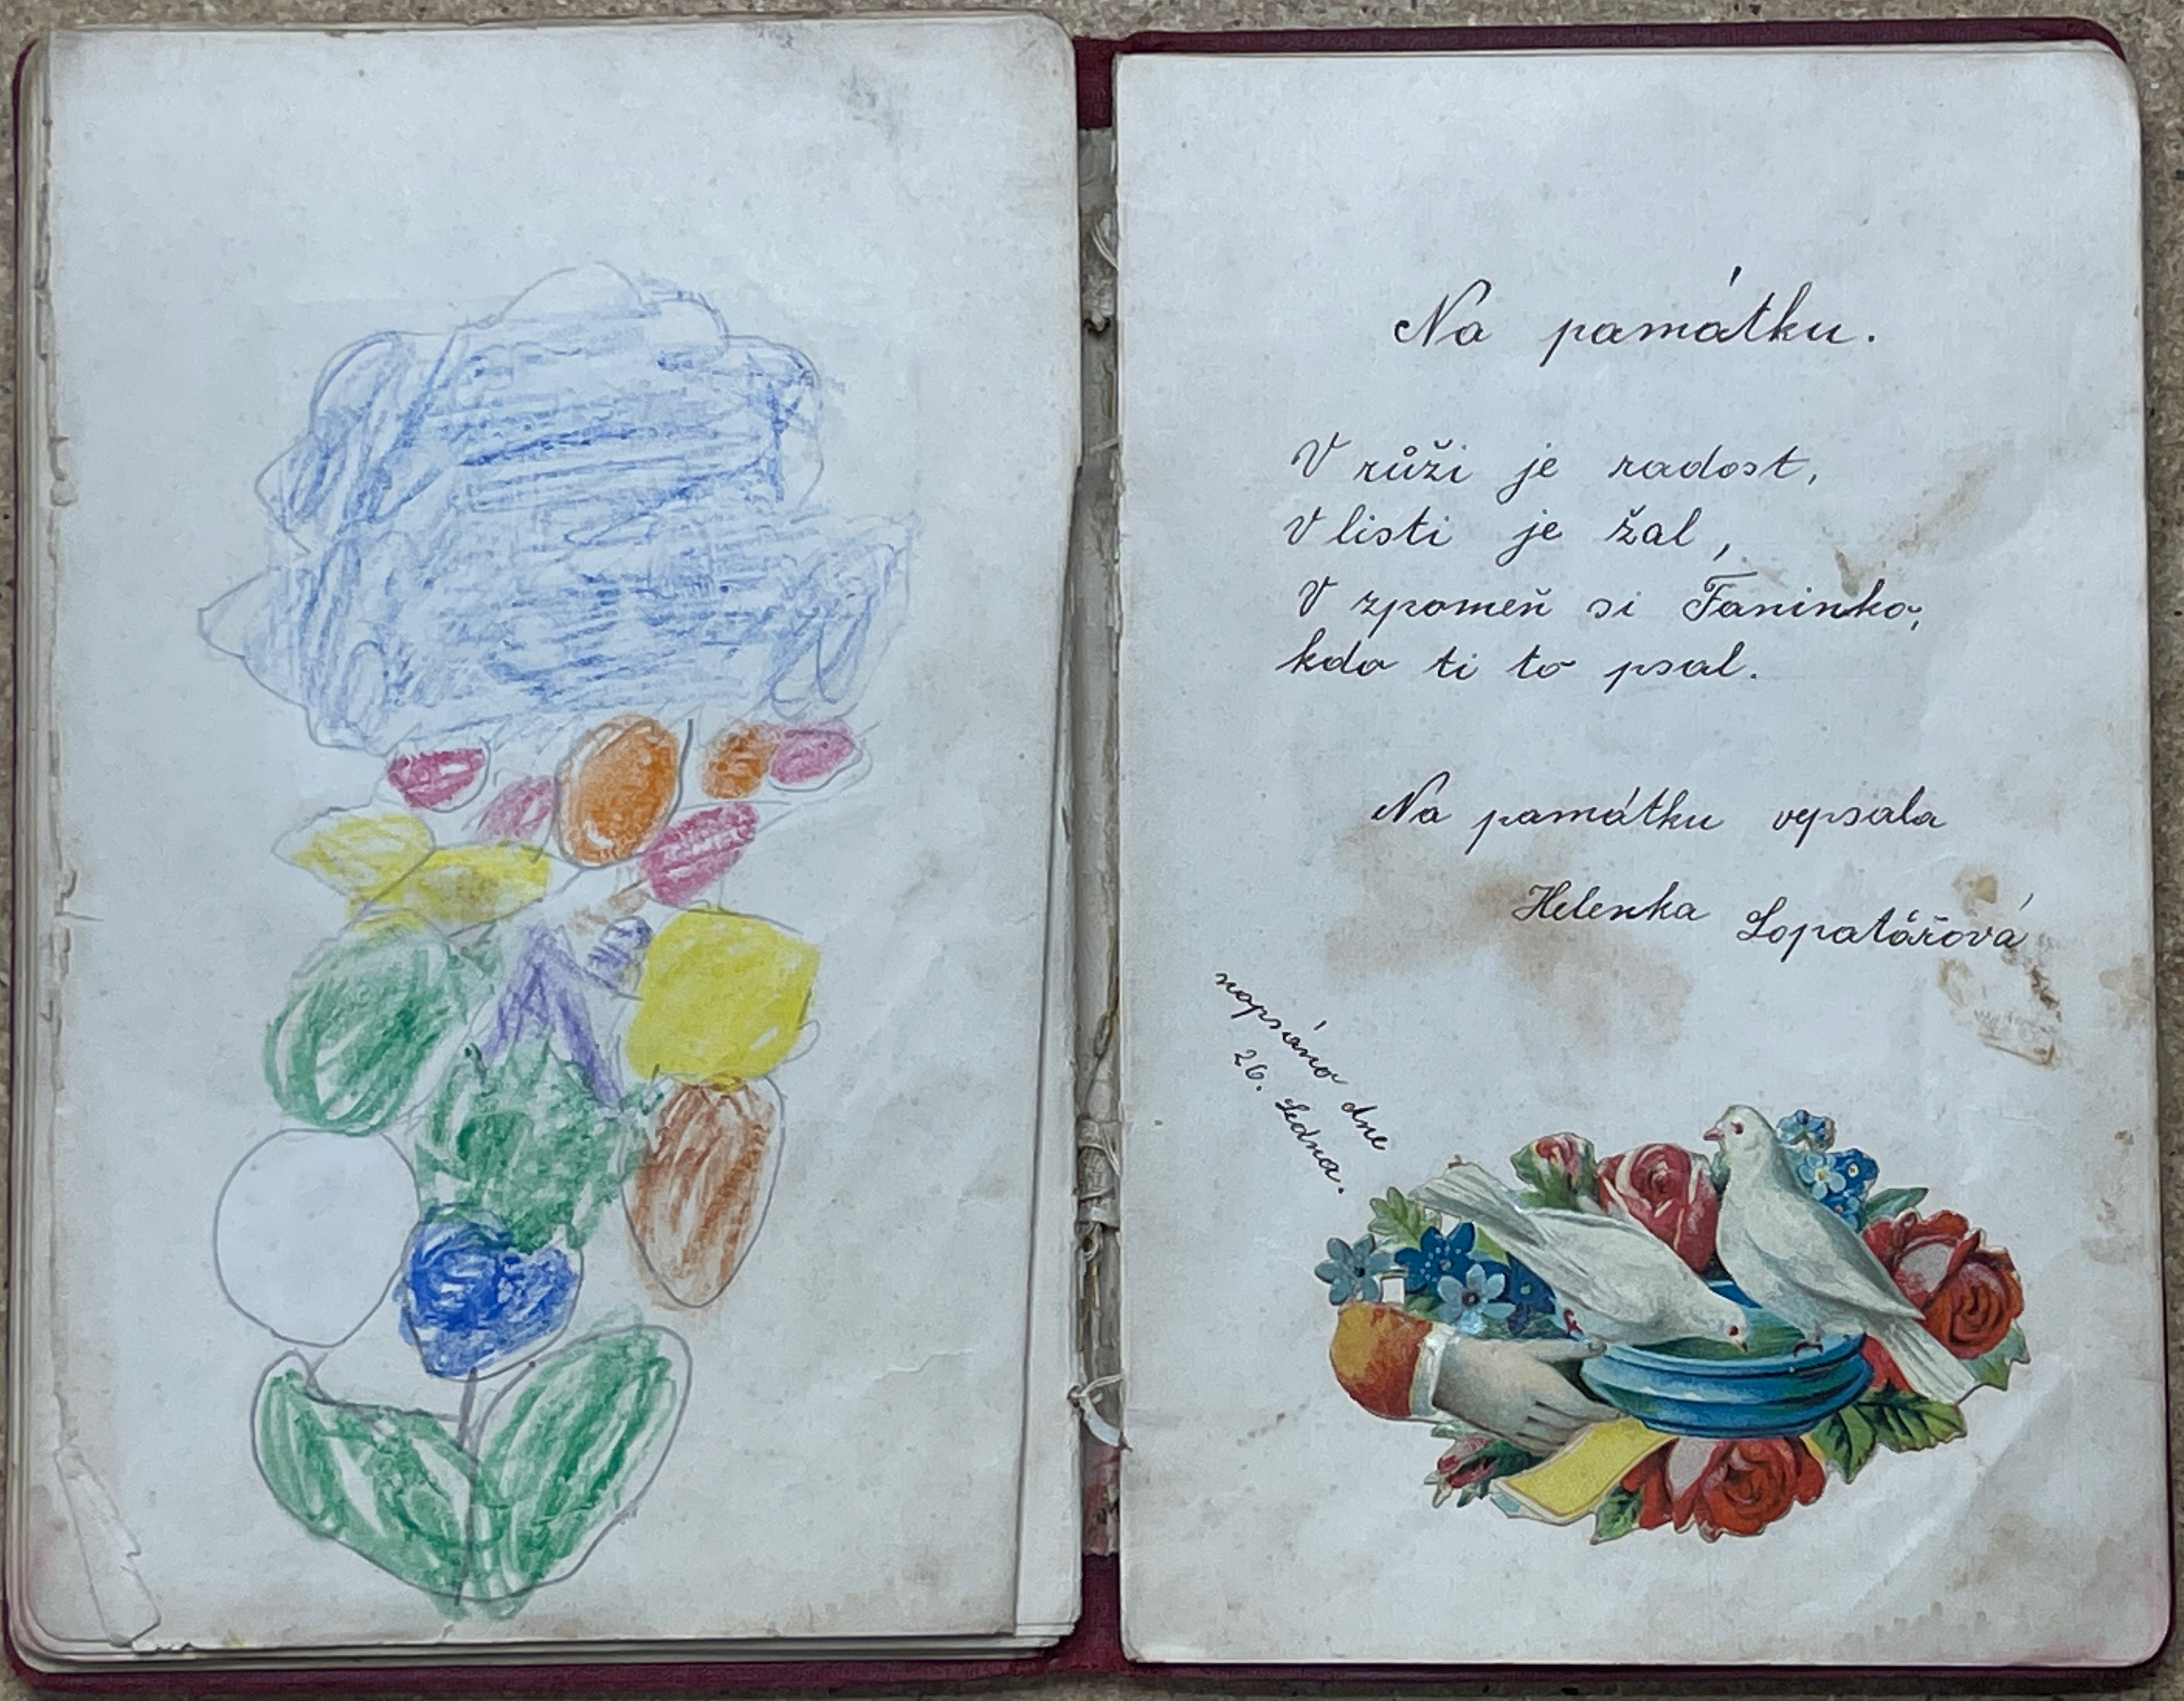 Na památku.
V růži je radost,
V listi je žal,
V zpomeň si Faninko,
kdo ti to psal.
Na památku vepsala
Helenka Lopatářová
napsáno dne
26. Ledna.